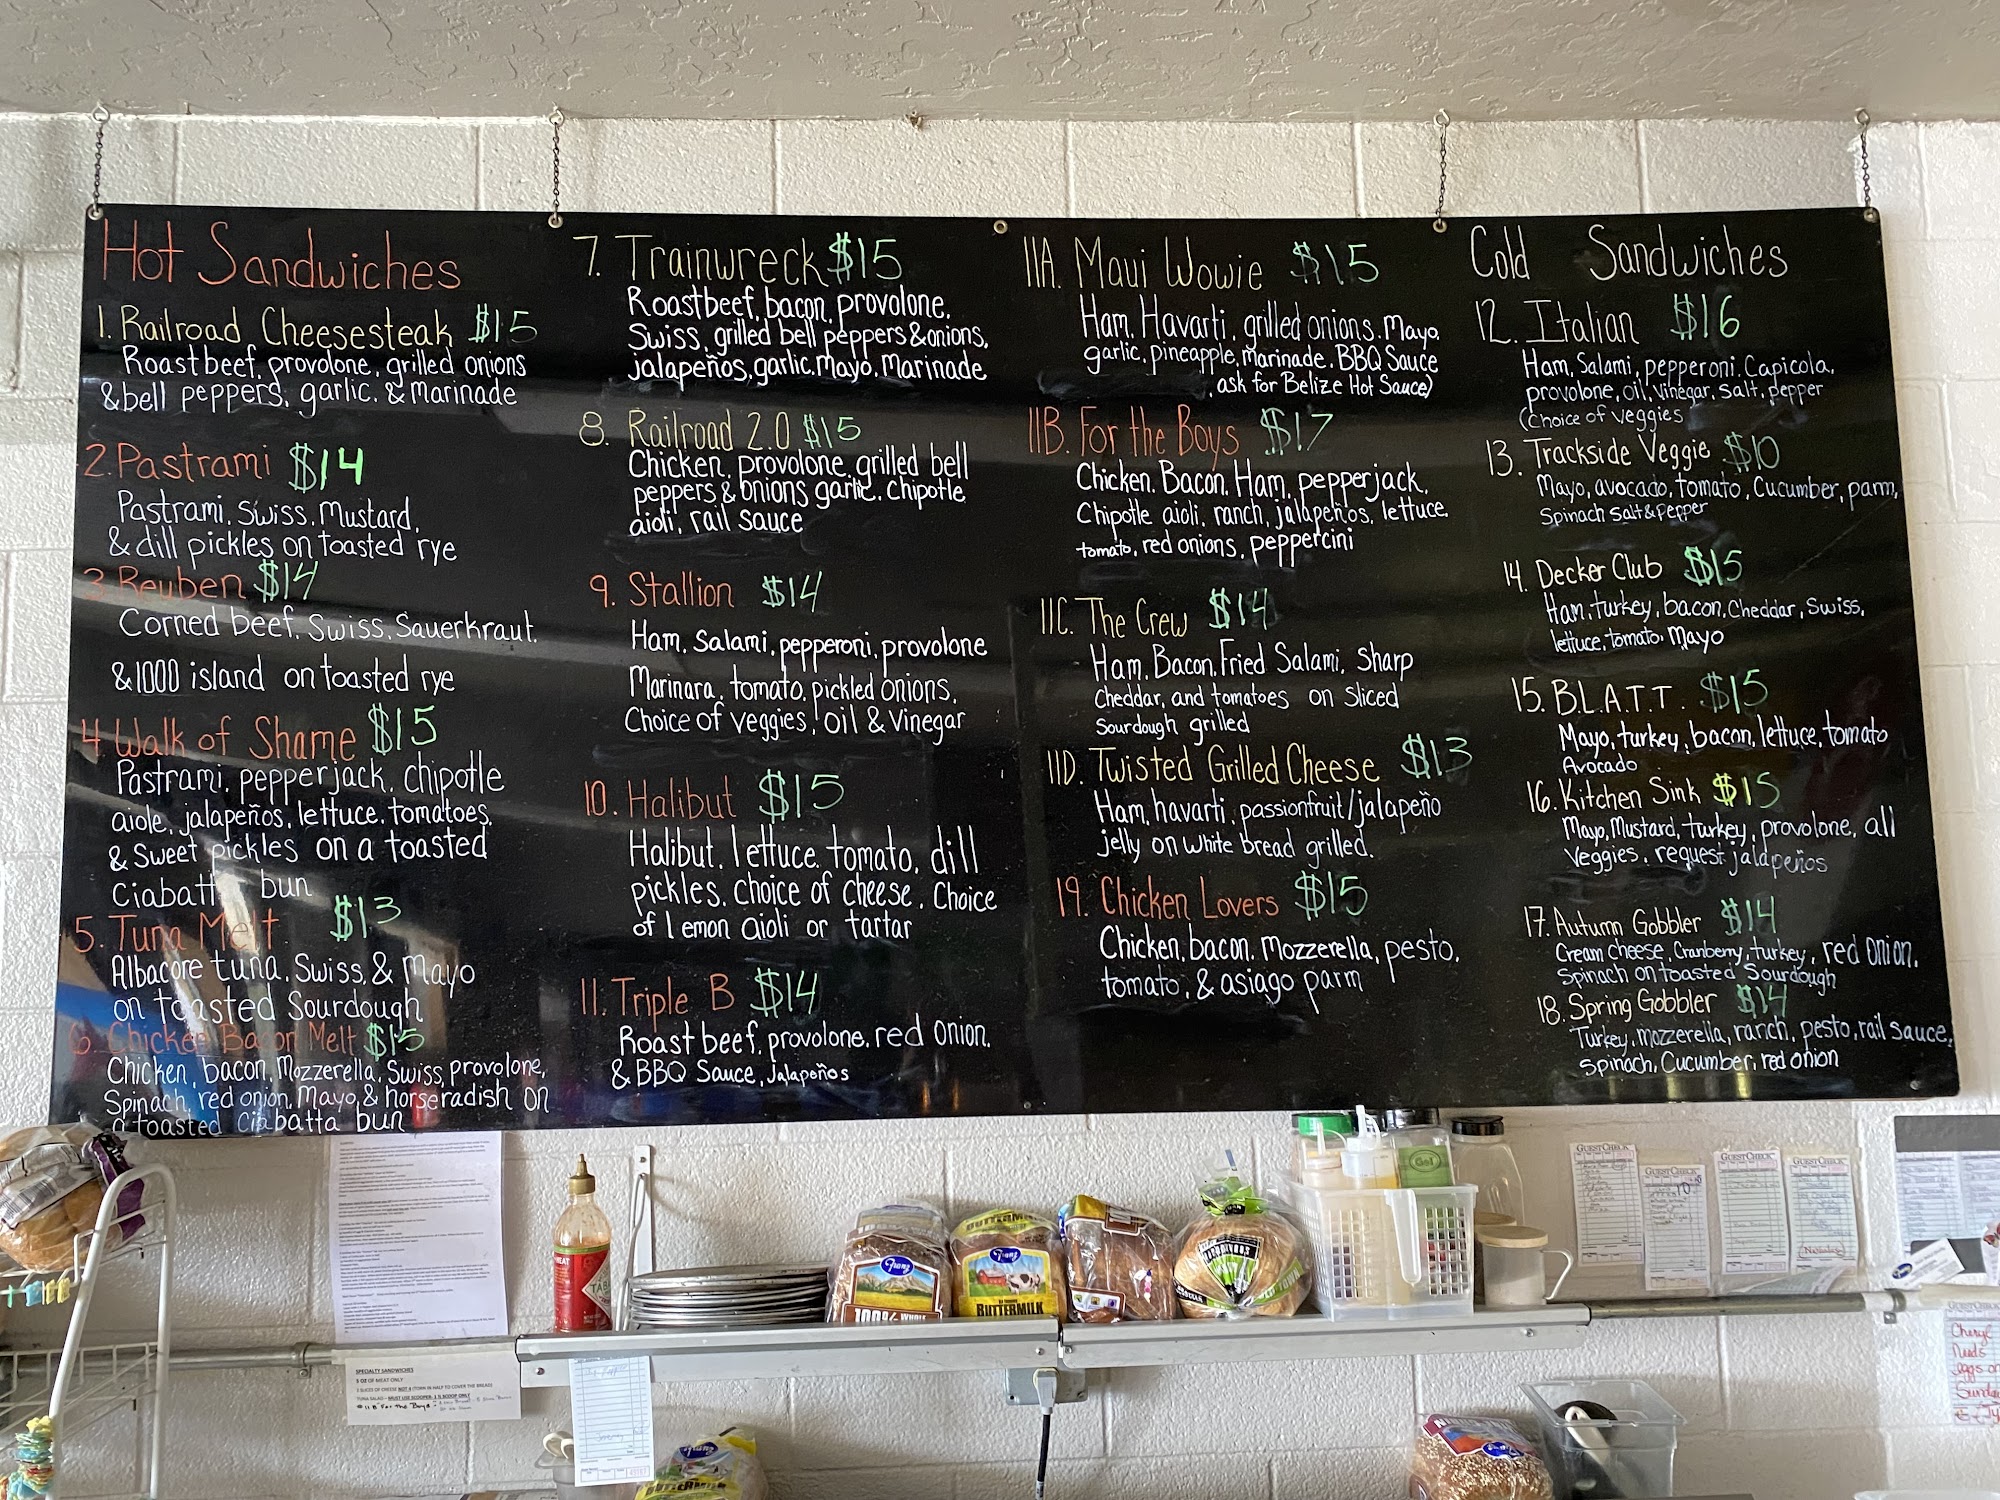 Hot Sandwiches
1. Railroad Cheesesteak $15
Roast beef, provolone, grilled onions
& bell peppers, garlic, & Marinade
2. Pastrami $14
Pastrami, Swiss, Mustard,
& dill pickles on toasted rye
3. Reuben $14
Corned beef, Swiss, Sauerkraut,
& 1000 island on toasted rye
4 Walk of Shame $15
Pastrami, pepperjack, chipotle
aiole, jalapeños, lettuce, tomatoes,
& Sweet pickles on a toasted
Ciabatt bun
5. Tuna Melt $13
Albacore tuna, Swiss, & Mayo
on toasted Sourdough
6. Chicken Bacon Melt $15
Chicken, bacon, Mozzerella, Swiss, provolone,
Spinach, red onion, Mayo, & horseradish on
a toasted Ciabatta bun
7. Trainwreck $15
Roastbeef, bacon, provolone,
Swiss, grilled bell peppers & onions,
jalapeños, garlic, Mayo, Marinade
8. Railroad 2.0 $15
Chicken, provolone, grilled bell
peppers & onions garlic, Chipotle
aioli, rail sauce
9. Stallion $14
Ham, Salami, pepperoni, provolone
Marinara, tomato, pickled onions,
Choice of veggies, oil & Vinegar
10. Halibut $15
Halibut, lettuce, tomato, dill
pickles, Choice of cheese, Choice
of lemon aioli or tartar
11. Triple B $14
Roast beef, provolone, red onion,
& BBQ Sauce, Jalapeños
11A. Maui Wowie $15
Ham, Havarti, grilled onions, Mayo,
garlic, pineapple, Marinade, BBQ Sauce
, ask for Belize Hot Sauce)
11B. For the Boys $17
Chicken, Bacon, Ham, pepperjack,
Chipotle aioli, ranch, jalapeños, lettuce,
tomato, red onions, peppercini
11C. The Crew $14
Ham, Bacon, Fried Salami, Sharp
Cheddar, and tomatoes on sliced
Sourdough grilled
11D. Twisted Grilled Cheese $13
Ham, havarti, passionfruit/jalapeño
jelly on white bread grilled.
19. Chicken Lovers $15
Chicken, bacon, Mozzerella, pesto,
tomato, & asiago parm
Cold Sandwiches
12. Italian $16
Ham, Salami, pepperoni, Capicola,
provolone, oil, vinegar, salt, pepper
(Choice of veggies
13. Trackside Veggie $10
Mayo, avocado, tomato, Cucumber, parm,
Spinach Salt & Pepper
14. Decker Club $15
Ham, turkey, bacon, Cheddar, Swiss,
lettuce, tomato, Mayo
15. B.L.A.T.T. $15
Mayo, turkey, bacon, lettuce, tomato
Avocado
16. Kitchen Sink $15
Mayo, Mustard, turkey, provolone, all
Veggies, request jalapeños
17. Autumn Gobbler $14
Cream Cheese, Cranberry, turkey, red onion,
Spinach on toasted Sourdough
18. Spring Gobbler $14
Turkey, mozzerella, ranch, pesto, rail sauce,
Spinach, Cucumber, red onion
SPECIALTY SANDWICHES
5 OZ OF MEAT ONLY
Franz
100% WHOLE
BUTTERMILK
Franz
BUTTERMILK
GUESTCHECK
GUESTCHECK
GUESTCHECK
GUESTCHECK
Franz